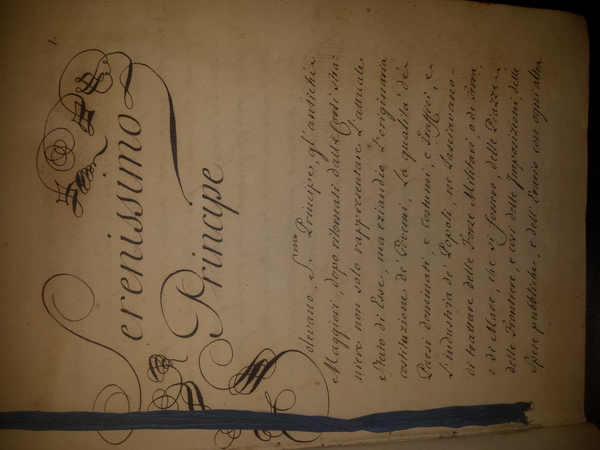 1.
Serenissimo
Principe
Solevano, S.mo Principe, gl'antichi
Maggiori, dopo ritornati dalle Corti stra-
niere non solo rappresentare l'attuale
Stato di Esse, ma eziandio l'originaria
costituzione de' Governi, la qualità de'
Paesi dominati, e Costumi, e Traffici, e
l'industria de' Popoli, ne lasciavano
di trattare delle Forze Militari, o di Terra,
o di Mare, che si fossero, delle Piazze
delle Frontiere, e così delle Imposizioni, delle
Spese pubbliche, e dell'Erario con ogni altra